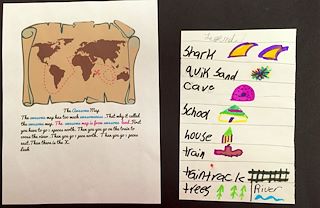 The Awesome Map
The awesome map has too much awesomeness. That why it called
the awesome map. The awesome map is from awesome land. First
you have to go 1 spaces north. Then you go on the train to
cross the river. Then you go 1 space north. Then you go 1 spaces
east. Then there is the X.
Leah
Legend:
Shark
quik Sand
cave
School
house
train
traintrack
trees
River